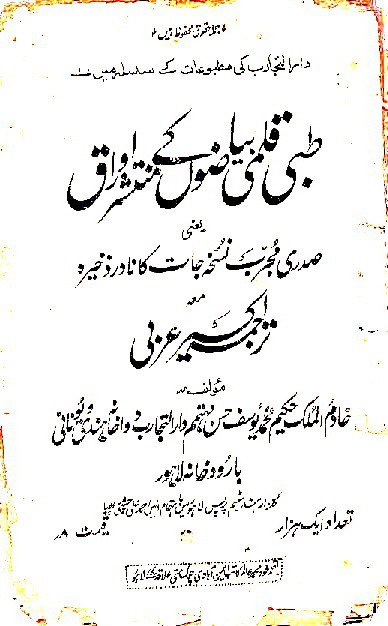 جملہ حقوق محفوظ ہیں
دارالتجارب کی مطبوعات کے سلسلہ میں
طبی قلمی بیاضوں کے منتشر اوراق
یعنی
صدری مجرب نسخہ جات کا نادر ذخیرہ
معہ
ترجمہ اکسیر عربی
مؤلفہ
خادم الملک حکیم محمد یوسف حسن مہتمم دارالتجارب دواخانہ ہندی و یونانی
بارود خانہ لاہور
تعداد ایک ہزار
قیمت ۸